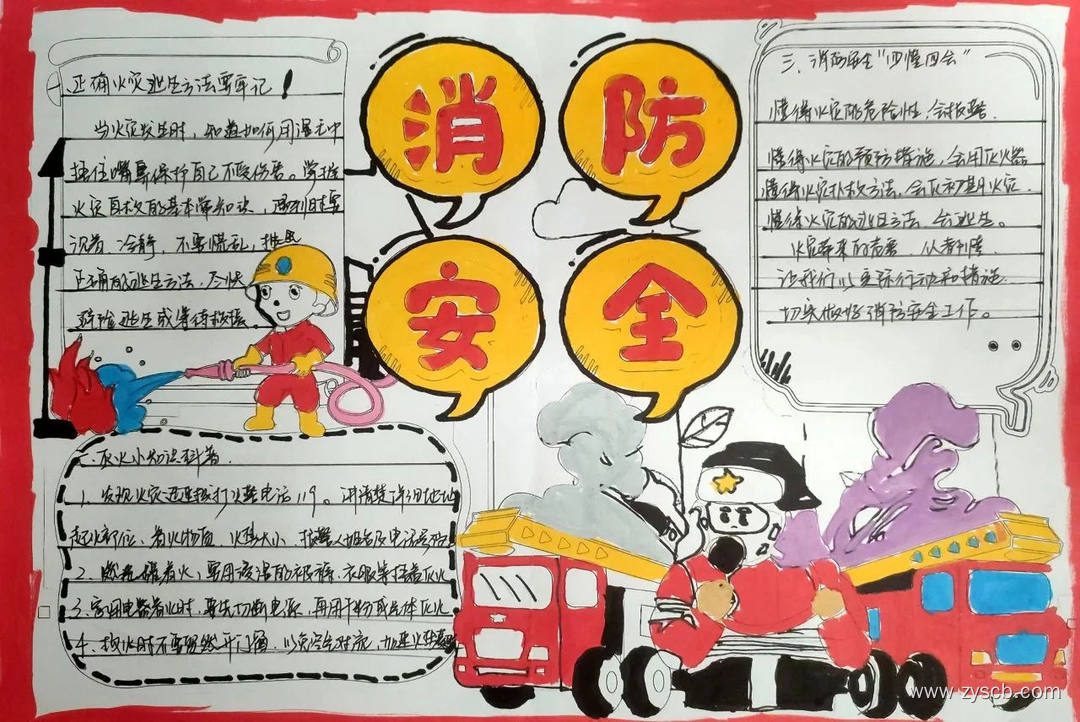 消防
安全
正确火灾逃生方法要牢记!
当火灾发生时,知道如何用湿毛巾
捂住嘴鼻保护自己不受伤害。掌握
火灾自救的基本常知识,遇到时要
沉着、冷静,不要慌乱,
正确的逃生方法,尽快
逃生或等待救援。
二、灭火小知识科普.
1、发现火灾迅速拨打火警电话119。讲清楚详细地址
起火部位、着火物质、火势大小、报警人姓名及电话号码
2、着火,要用浸湿的被褥、衣服等捂盖灭火
3、家用电器着火时,要先切断电源,再用干粉或气体灭火
4、救火时不要贸然开门窗,以免空气对流,加速火势蔓延
三、消防安全“四懂四会”
懂得火灾的危险性,会报警.
懂得火灾的预防措施,会用灭火器
懂得火灾扑救方法,会灭初期火灾.
懂得火灾的逃生方法,会逃生。
火灾带来的危害,
让我们以实际行动和措施
切实做好消防安全工作。
www.zyscb.com